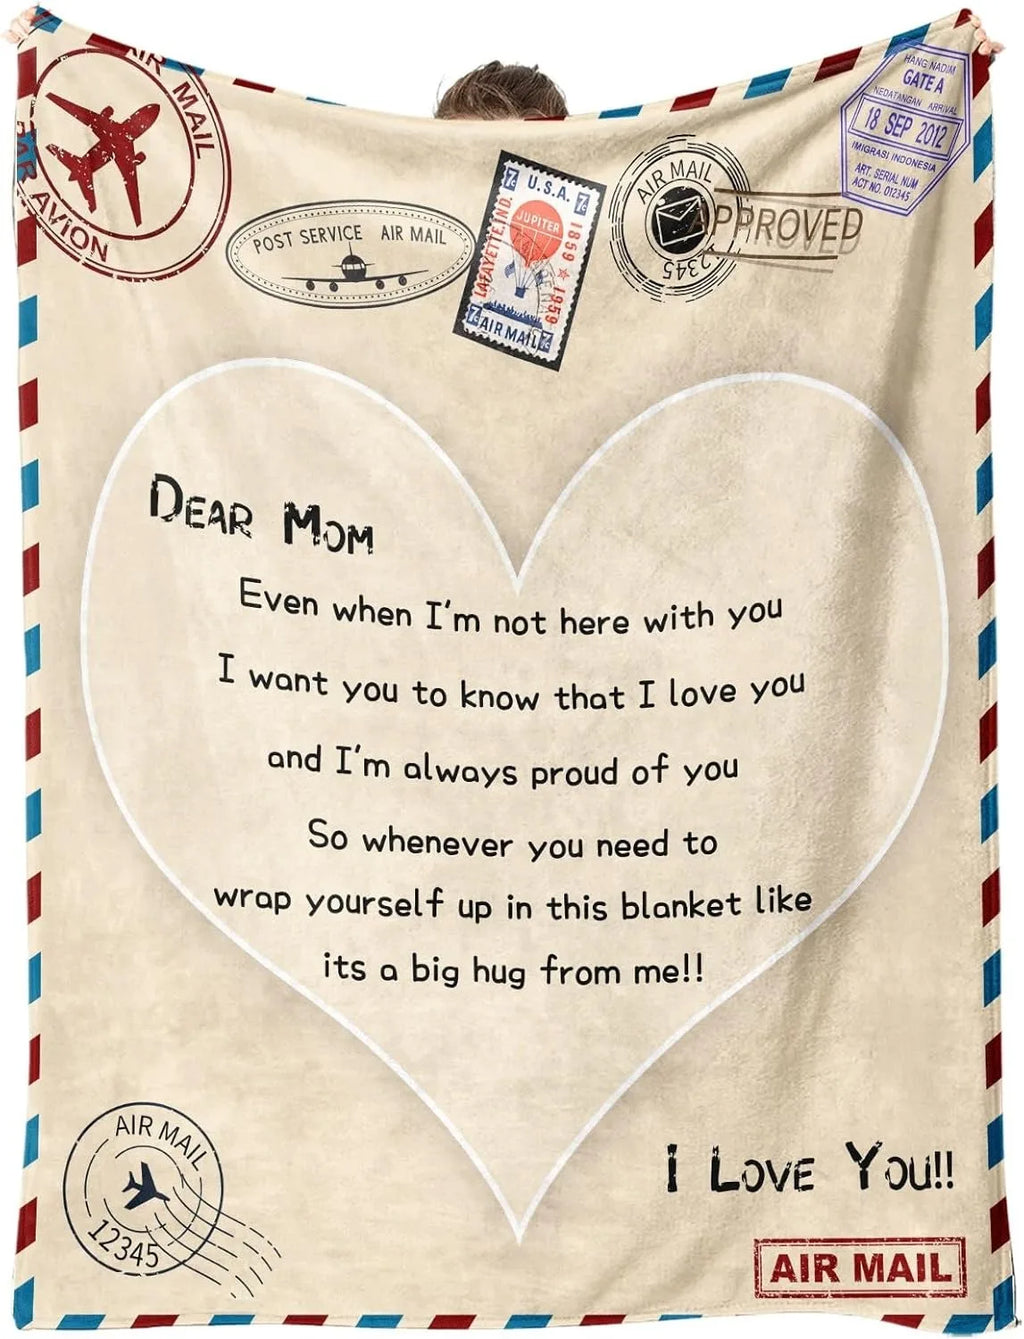 AIR MAIL
PAR AVION
POST SERVICE AIR MAIL
7c U.S.A. 7c
JUPITER
LAFAYETTE, IND.
1859 ★ 1959
7c AIR MAIL 7c
AIR MAIL
12345
APPROVED
HANG NADIM
GATE A
NEDATANGAN ARRIVAL
18 SEP 2012
IMIGRASI INDONESIA
ART. SERIAL NUM
ACT NO. 012345
DEAR MOM
Even when I'm not here with you
I want you to know that I love you
and I'm always proud of you
So whenever you need to
wrap yourself up in this blanket like
its a big hug from me!!
I LOVE YOU!!
AIR MAIL
12345
AIR MAIL